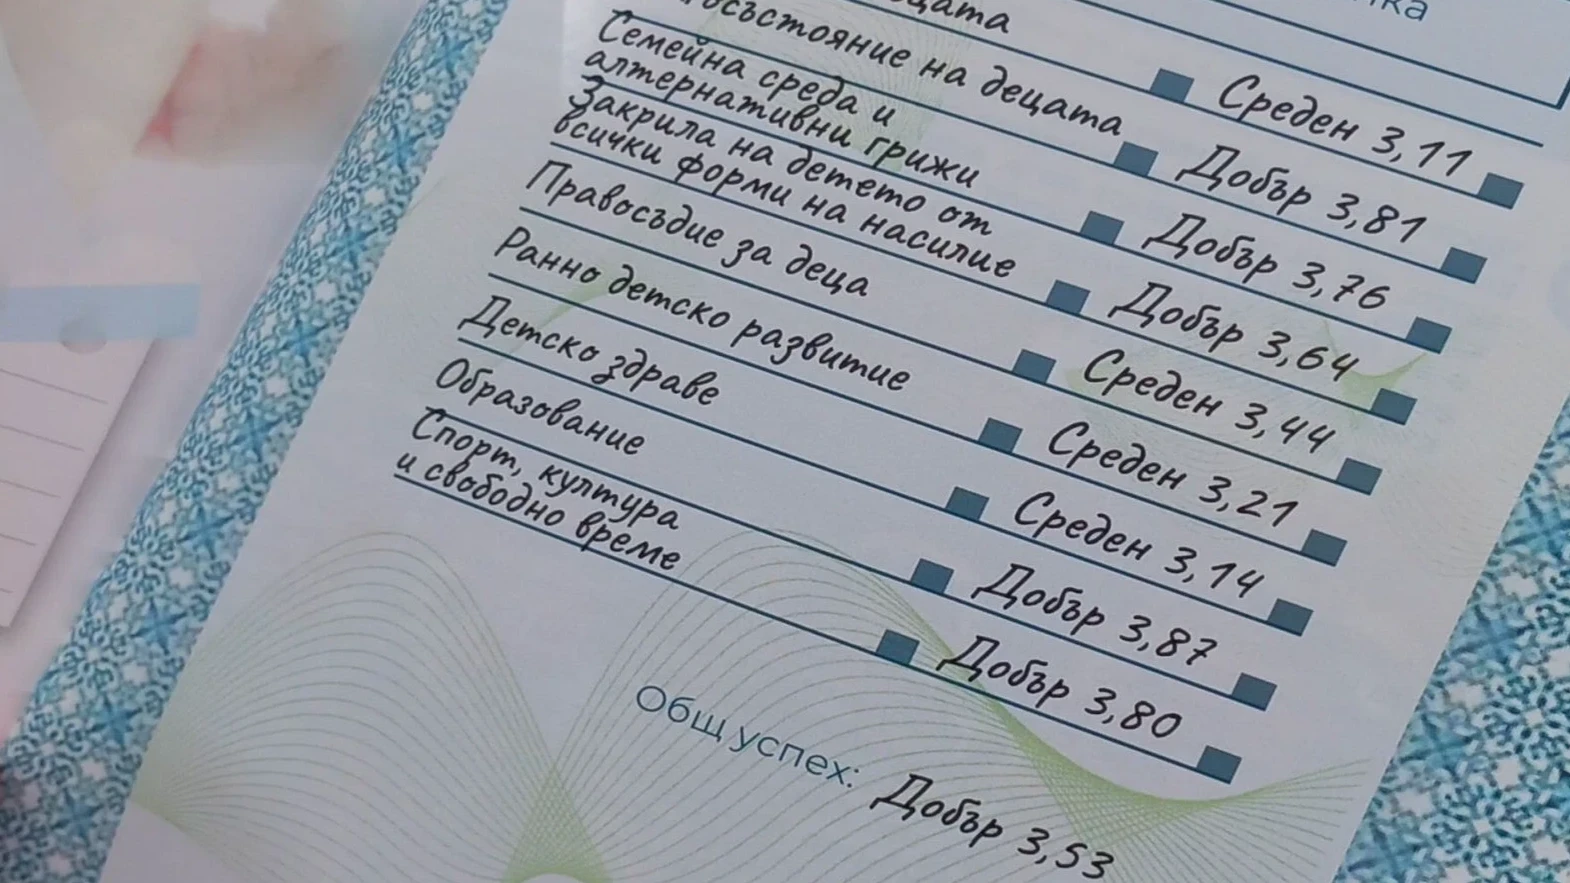 Среден 3,11
Добър 3,81
Семейна среда и
алтернативни грижи
Добър 3,76
Закрила на детето от
всички форми на насилие
Добър 3,64
Правосъдие за деца
Среден 3,44
Ранно детско развитие
Среден 3,21
Детско здраве
Среден 3,14
Образование
Добър 3,87
Спорт, култура
и свободно време
Добър 3,80
Общ успех: Добър 3,53